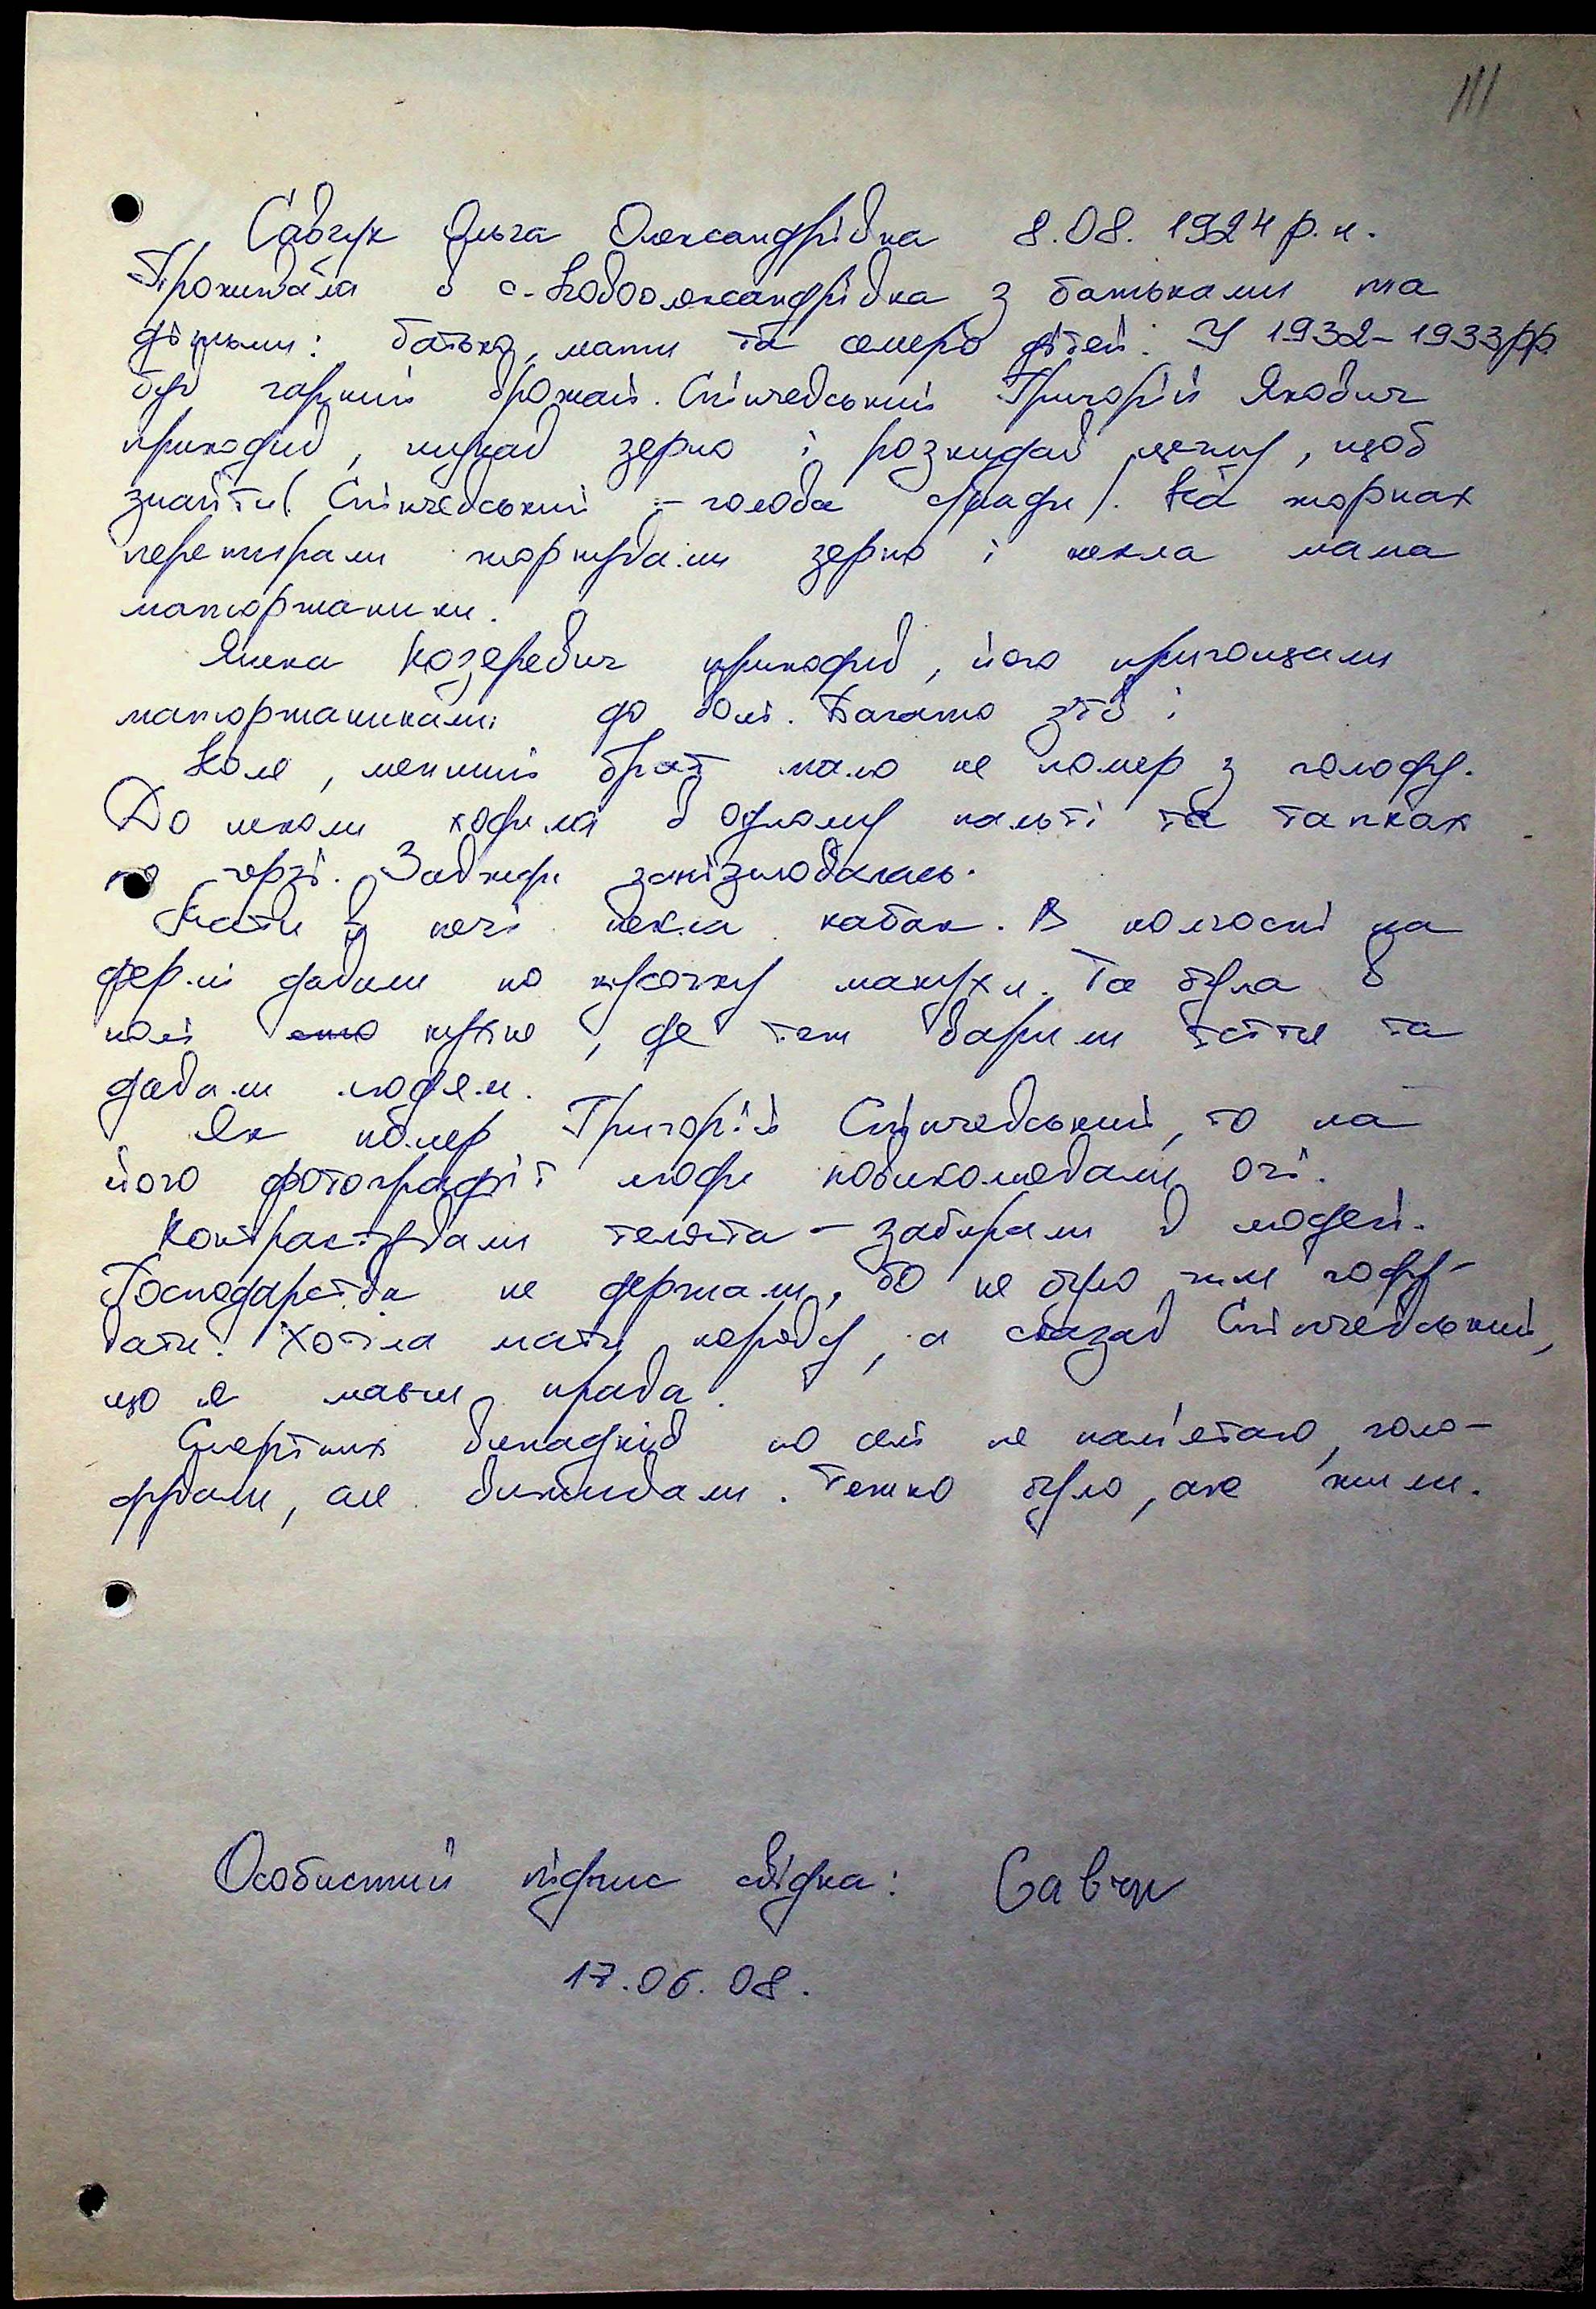 111
Савчук Ольга Олександрівна 8.08.1924 р.н.
Проживала в с. Новоолександрівка з батьками та
дітьми: батько, мати та семеро дітей. У 1932-1933рр
був гарний врожай. Спінчевський Григорій Якович
приходив, шукав зерно і розкидав цеглу, щоб
знайти (Спінчевський - голова сільради). На жорнах
перетирали жорнували зерно і пекла мама
маторжаники.
Яшка Козеревич приходив, його пригощали
маторжаниками до волі. Багато з'їв і
Коля, менший брат мало не помер з голоду.
До школи ходила в одному пальті та тапках
по черзі. Завжди запізнювалась.
Мати в печі пекла кабак. В колгоспі на
фермі давали по кусочку макухи. Та була в
полі кухня, де там варили їсти та
давали людям.
Як помер Григорій Спінчевський, то на
його фотографії люди повиколювали очі.
Контрактували телята - забирали в людей.
Господарства не держали, бо не було чим году-
вати. Хотіла мати корову, а сказав Спінчевський,
що не маєш права.
Смертних випадків по селі не пам'ятаю, голо-
дували, але виживали. Тяжко було, але жили.
Особистий підпис свідка: Савчук
17.06.08.